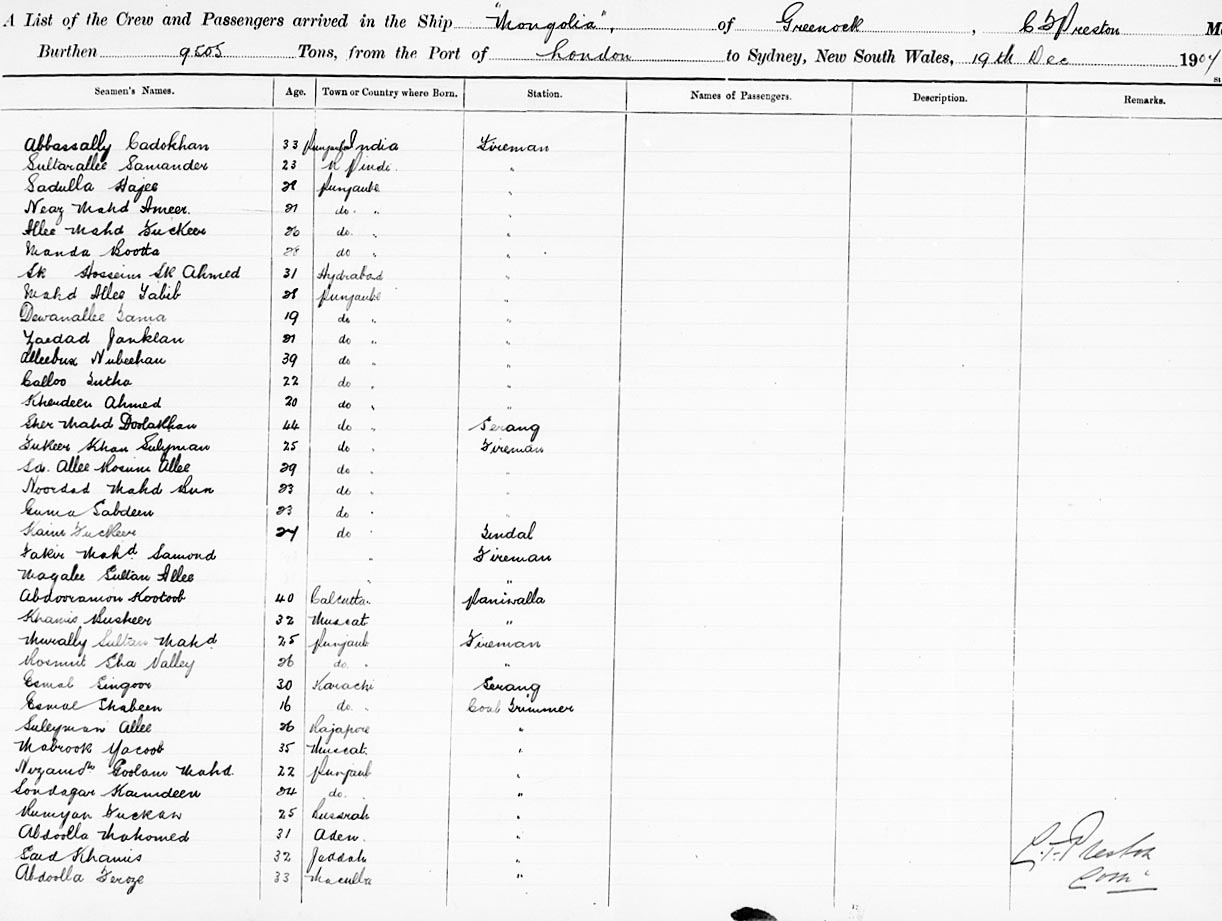 A List of the Crew and Passengers arrived in the Ship "Mongolia", of Greenock, C F Preston
Burthen 9505 Tons, from the Port of London to Sydney, New South Wales, 19th Dec 1904
Seamen's Names. Age. Town or Country where Born. Station. Names of Passengers. Description. Remarks.
Abbassally Cadokhan 33 India Fireman
Sultarallee Samander 23 R Pindi "
Sadulla Hajee 28 Punjaube "
Neaz Mahd Ameer. 21 do. " "
Allee Mahd Fuckeer 26 do. " "
Manda Bootta 28 do " "
Sk Hosseim Sk Ahmed 31 Hydrabad "
Mahd Allee Tabib 28 Punjaube "
Dewanallee Zama 19 do " "
Zaedad Janklan 21 do "
Alleebux Nubeehan 39 do " "
Calloo Futha 22 do " "
Kherdeen Ahmed 20 do " "
Sher Mahd Doolakhan 44 do " Serang
Fukeer Khan Sulyman 25 do " Fireman
Sa. Allee Hosum Allee 29 do " "
Noordad Mahd Bun 23 do " "
Guma Sabdeen 23 do " "
Kaim Fuckeer 27 do " Tindal
Fakir Mahd Samond " Fireman
Magalee Sultan Allee " "
Abdooramon Kootoob 40 Calcutta. Paniwalla
Khamis Busheer 32 Muscat "
Murally Sultan Mahd 25 Punjaub Fireman
Sha Valley 26 do. " "
Esmal Gingoor 30 Karachi Serang
Esmal Shabeen 16 do. " Coal Trimmer
Suleyman Allee 26 Rajapore "
Mabrook Yacoob 35 Muscat. "
Goolam Mahd. 22 Punjaub "
Sondagar Kamdeen 24 do. "
Fuckan 25 Bussrah "
Abdoolla Mahomed 31 Aden. "
Said Khamis 32 Jaddah "
Abdoolla Feroze 33 Maculla "
C. F. Preston
Comr